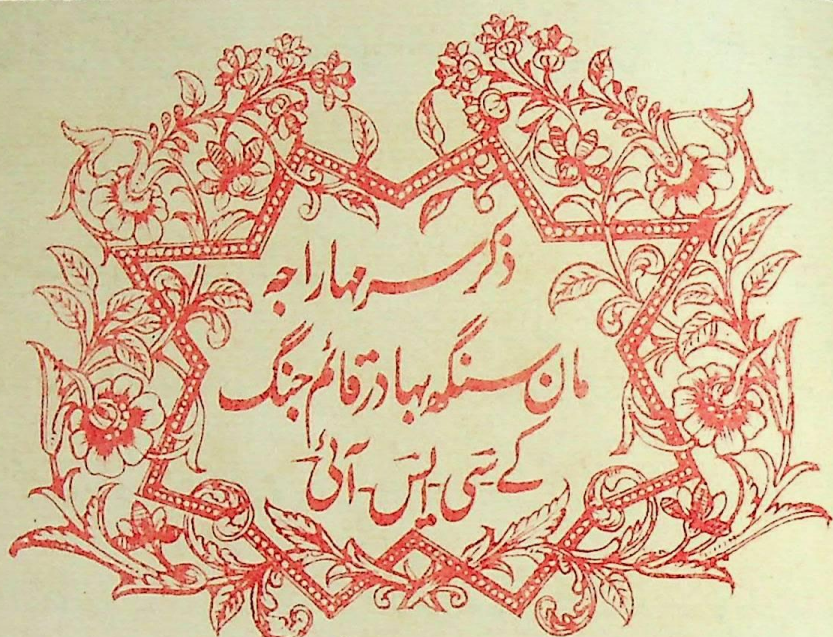 ذکر سر مہاراجہ
مان سنگھ بہادر قائم جنگ
کے۔سی۔ایس۔آئی